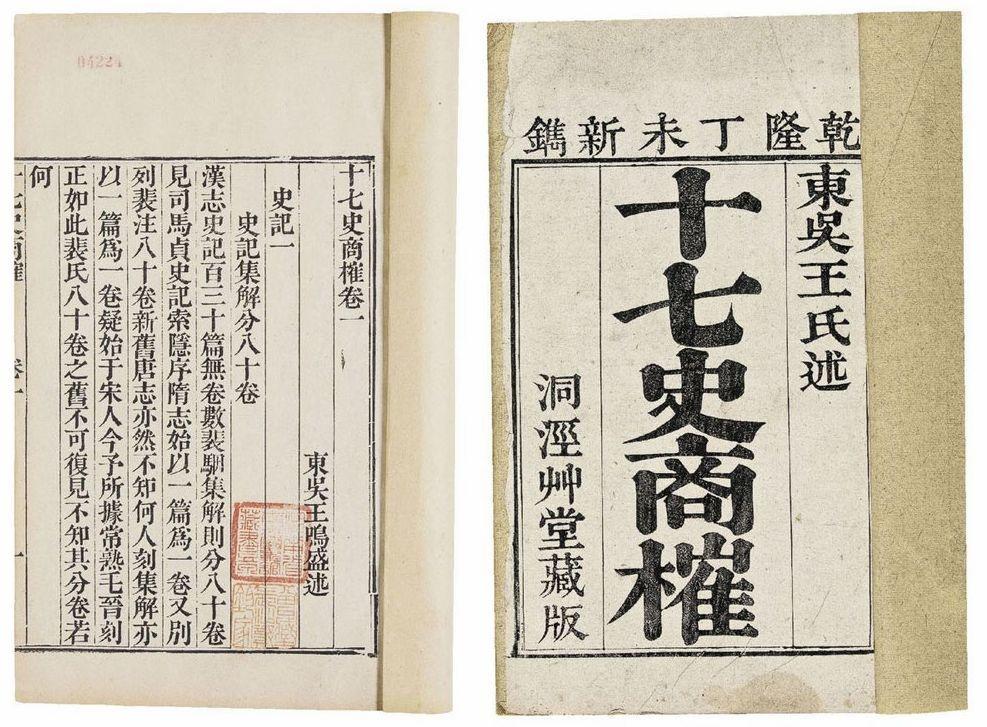 04224
十七史商榷卷一
東吳王鳴盛述
史記一
史記集解分八十卷
漢志史記百三十篇無卷數裴駰集解則分八十卷
見司馬貞史記索隱序隋志始以一篇爲一卷又別
列裴注八十卷新舊唐志亦然不知何人刻集解亦
以一篇爲一卷疑始于宋人今予所據常熟毛晉刻
正如此裴氏八十卷之舊不可復見不知其分卷若
何
十七史商榷 卷一 一
乾隆丁未新鐫
東吳王氏述
十七史商榷
洞涇艸堂藏版